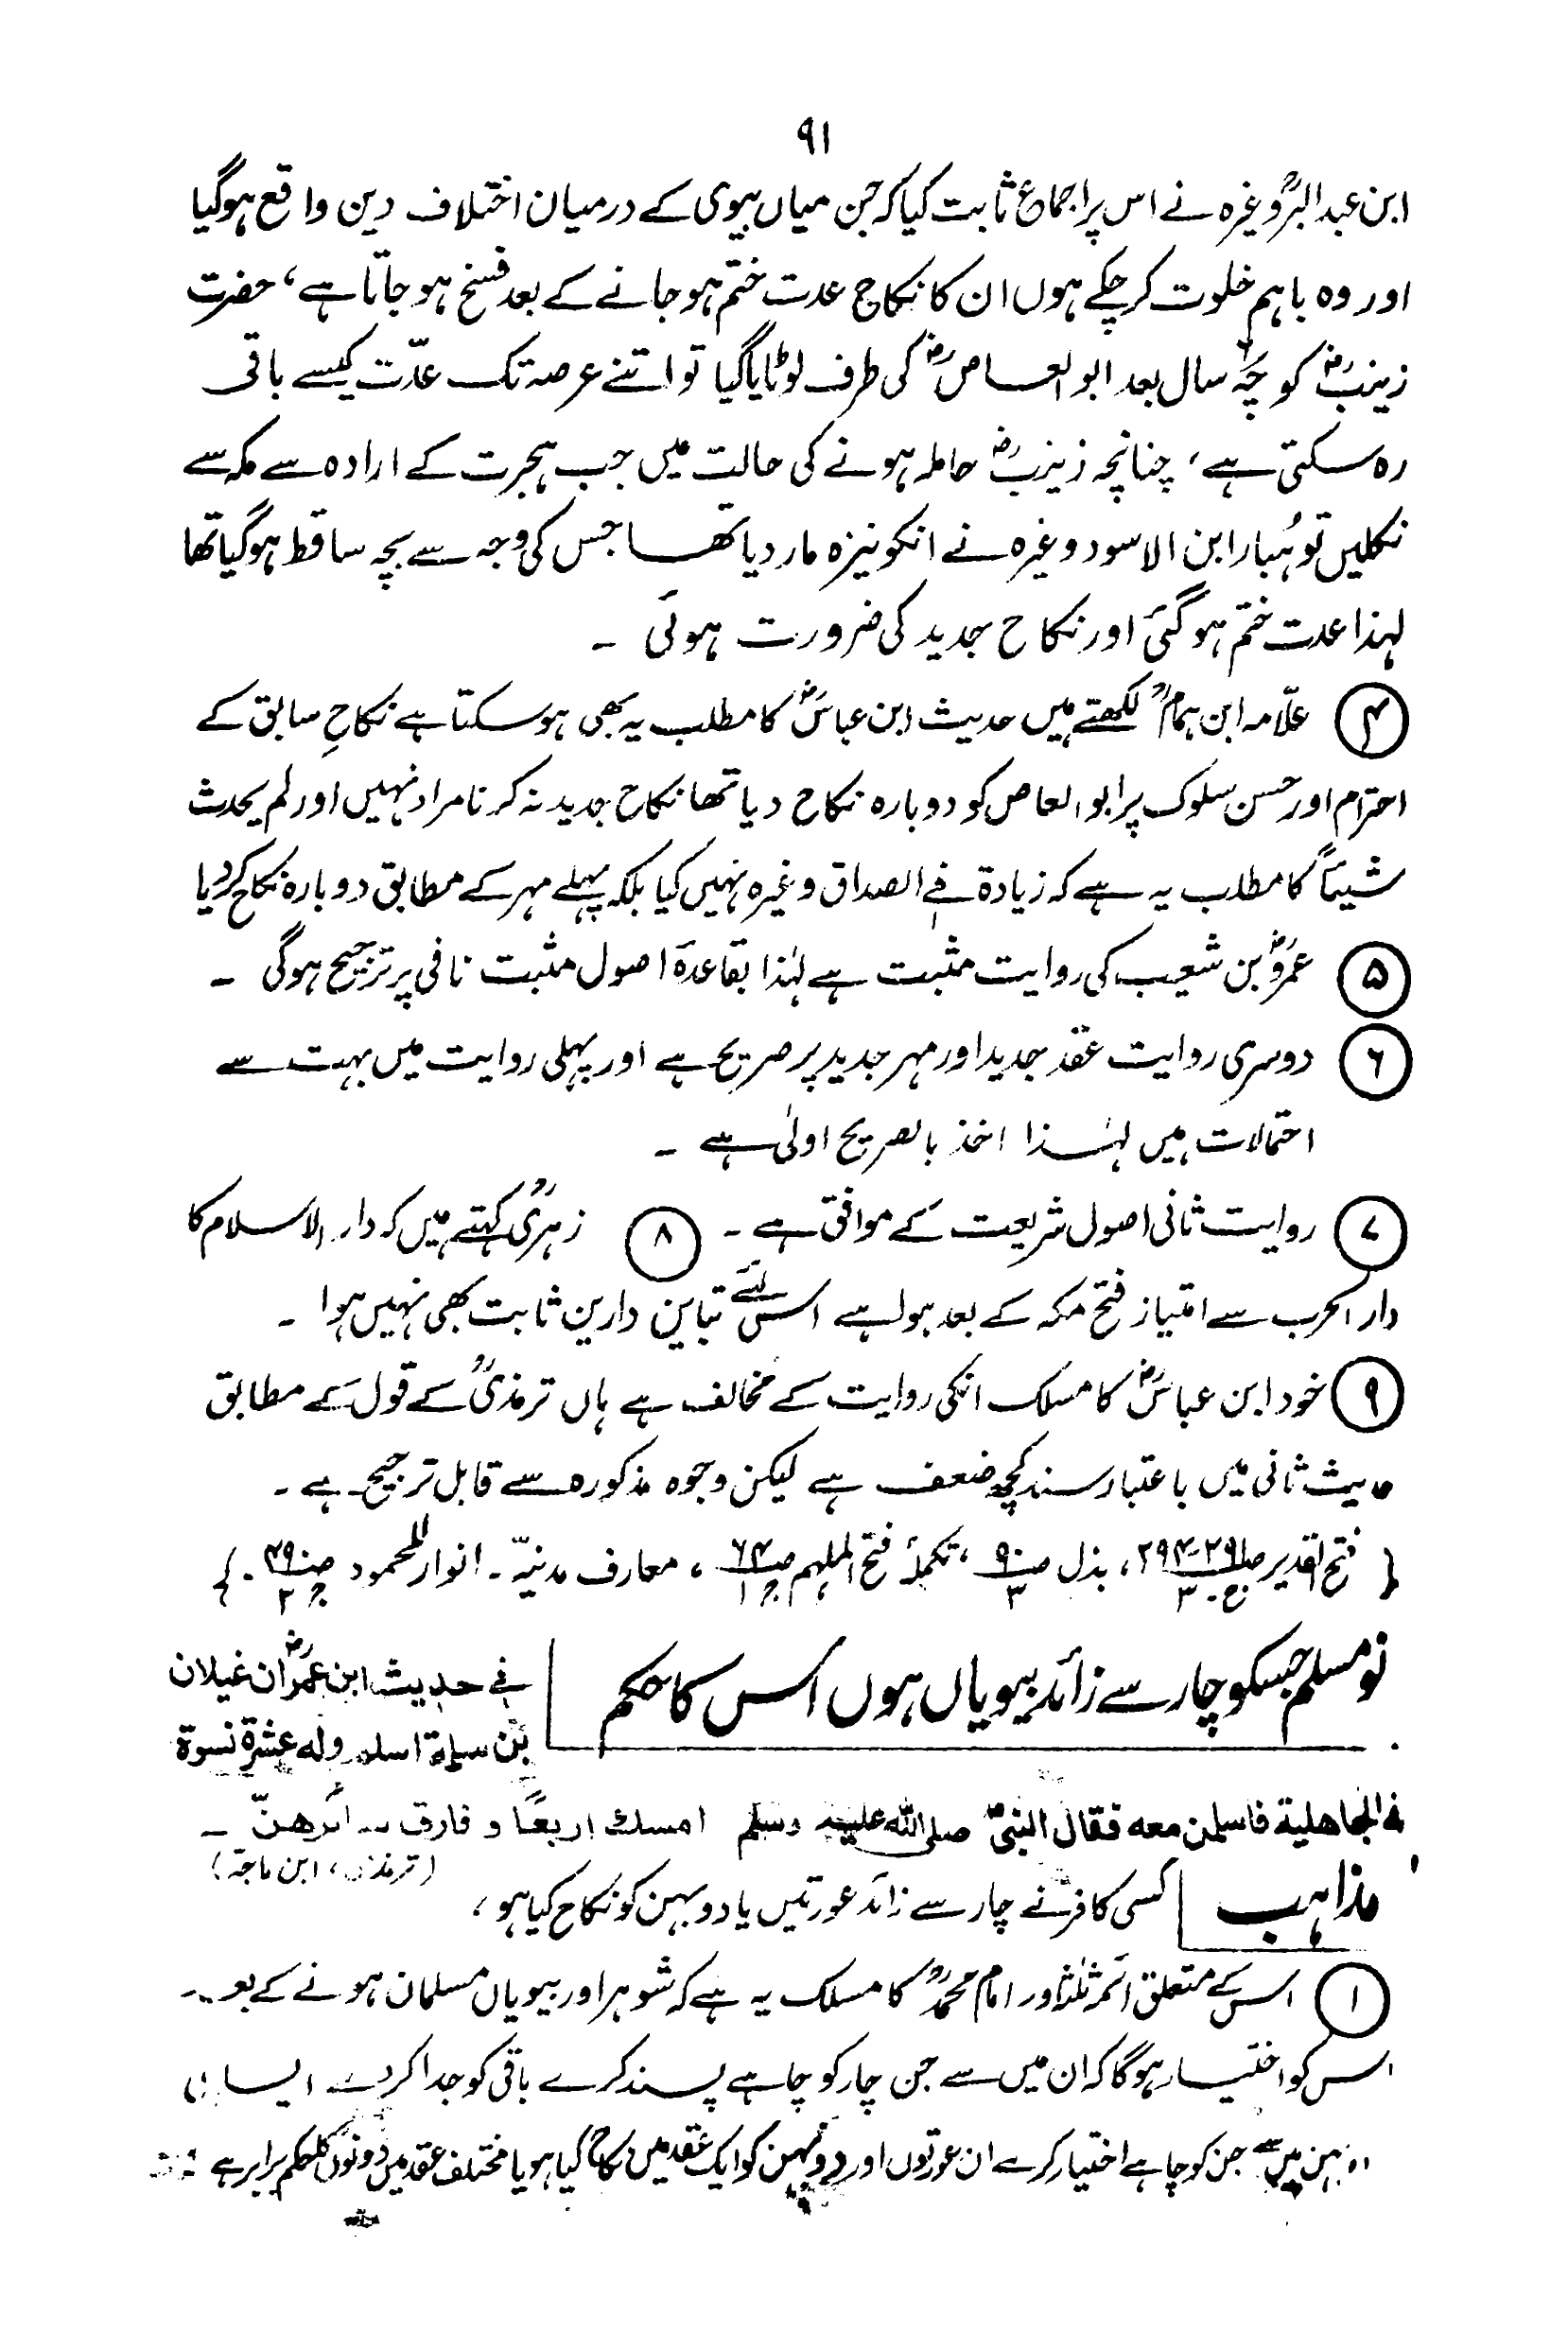 ۹۱
ابن عبد البرؒ وغیرہ نے اس پر اجماع ثابت کیا کہ جن میاں بیوی کے درمیان اختلاف دین واقع ہوگیا
اور وہ باہم خلوت کر چکے ہوں ان کا نکاح عدت ختم ہو جانے کے بعد فسخ ہو جاتا ہے، حضرت
زینبؓ کو چھ سال بعد ابو العاصؓ کی طرف لوٹایا گیا تو اتنے عرصہ تک عدّت کیسے باقی
رہ سکتی ہے، چنانچہ زینبؓ حاملہ ہونے کی حالت میں جب ہجرت کے ارادہ سے مکہ سے
نکلیں تو ہُبار ابن الاسود وغیرہ نے انکو نیزہ مار دیا تھا جس کی وجہ سے بچہ ساقط ہوگیا تھا
لہذا عدت ختم ہو گئی اور نکاح جدید کی ضرورت ہوئی ۔
۴ علّامہ ابن ہمامؒ لکھتے ہیں حدیث ابن عباسؓ کا مطلب یہ بھی ہو سکتا ہے نکاحِ سابق کے
احترام اور حسن سلوک پر ابو العاص کو دوبارہ نکاح دیا تھا نکاح جدید نہ کرنا مراد نہیں اور لم یحدث
شیئاً کا مطلب یہ ہے کہ زیادۃ فی الصداق وغیرہ نہیں کیا بلکہ پہلے مہر کے مطابق دوبارہ نکاح کر دیا
۵ عمروؓ بن شعیب کی روایت مثبت ہے لہٰذا بقاعدۂ اصول مثبت نافی پر ترجیح ہوگی ۔
۶ دوسری روایت عقد جدید اور مہر جدید پر صریح ہے اور پہلی روایت میں بہت سے
احتمالات ہیں لہٰذا اخذ بالصریح اولیٰ ہے ۔
۷ روایت ثانی اصول شریعت کے موافق ہے ۔ ۸ زہریؒ کہتے ہیں کہ دار الاسلام کا
دار الحرب سے امتیاز فتح مکہ کے بعد ہوا ہے اس لئے تباین دارین ثابت بھی نہیں ہوا ۔
۹ خود ابن عباسؓ کا مسلک انکی روایت کے مخالف ہے ہاں ترمذیؒ کے قول کے مطابق
حدیث ثانی میں باعتبار سند کچھ ضعف ہے لیکن وجوہ مذکورہ سے قابل ترجیح ہے ۔
{ فتح القدیر ص۲۹۱-۲۹۴ ج۳، بذل ص۹۰ ۳، تکملۂ فتح الملہم ص۶۴ ج۱، معارف مدنیّہ ۔ انوار المحمود ص۴۹۰ ج۲ . }
نو مسلم جسکو چار سے زائد بیویاں ہوں اس کا حکم
فی حدیث ابن عمرؓ ان غیلان
بن سلمة اسلم وله عشرة نسوة
فی الجاهلیة فاسلمن معه فقال النبیؐ صلی الله علیه وسلم امسك اربعًا و فارق سائرهنّ ۔
(ترمذی، ابن ماجہ)
مذاہب کسی کافر نے چار سے زائد عورتیں یا دو بہن کو نکاح کیا ہو،
۱ اس کے متعلق ائمہ ثلثہ اور امام محمدؒ کا مسلک یہ ہے کہ شوہر اور بیویاں مسلمان ہونے کے بعد
اس کو اختیار ہوگا کہ ان میں سے جن چار کو چاہے پسند کرے باقی کو جدا کر دے ایسا ہی
بہن میں سے جن کو چاہے اختیار کرے ان عورتوں اور دو بہن کو ایک عقد میں نکاح کیا ہو یا مختلف عقد میں دونوں کا حکم برابر ہے